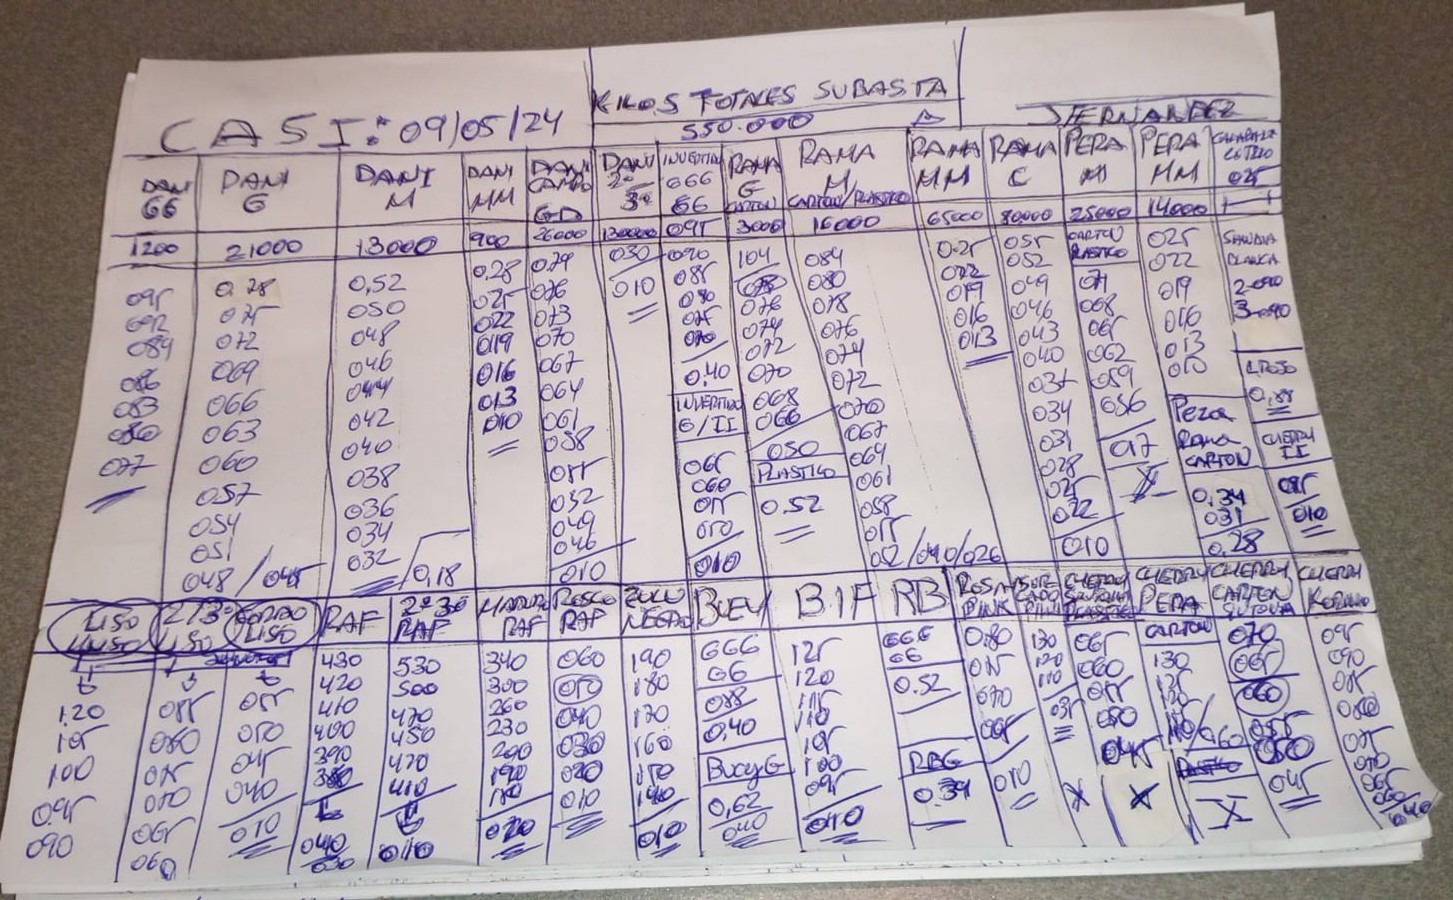 KILOS TOTALES SUBASTA
CASI: 09/05/24
550.000
J FERNANDEZ
DANI GG
DANI G
DANI M
DANI MM
DANI CANDO GD
DANI 2ª 3ª
INVERTIDO 666 66
RAMA G CARTON
RAMA M CARTON/PLASTICO
RAMA MM
RAMA C
PERA M
PERA MM
1200
21000
13000
900
26000
130000
095
3000
16000
65000
80000
25000
14000
095
092
089
086
083
080
077
0,78
075
072
069
066
063
060
057
054
051
048 / 045
0,52
050
048
046
044
042
040
038
036
034
032
0,18
0,28
025
022
019
016
013
010
079
076
073
070
067
064
061
058
055
052
049
046
010
030
010
090
085
080
075
070
0,40
INVERTIDO
G/II
065
060
055
050
010
104
078
076
074
072
070
068
066
050
PLASTICO
0,52
084
080
078
076
074
072
070
067
064
061
058
055
052/040/026
0,25
022
019
016
013
055
052
049
046
043
040
037
034
031
028
025
022
010
CARTON
PLASTICO
071
068
065
062
059
056
017
025
022
019
016
013
010
Pera
Rama
CARTON
0,34
031
0,28
SANDIA
BLANCA
2-090
3-080
CHERRY
II
085
010
LISO
2/3ª LISO
LISO
RAF
2ª 3ª RAF
RAF
ROSCO RAF
NEGRO
BUEY
BIF
RB
ROSA PINK
CHERRY PERA
CHERRY CARTON
CHERRY
1,20
105
100
0,95
090
085
080
075
070
065
060
055
050
045
040
010
430
420
410
400
390
380
040
030
530
500
470
450
420
410
010
340
300
260
230
200
190
180
020
060
050
040
030
020
010
190
180
170
160
150
140
010
666
66
088
0,40
Buey G
0,62
040
125
120
115
110
105
100
095
010
666
66
0.52
RBG
0.34
0,80
075
070
065
010
130
120
110
035
X
065
060
055
050
045
X
CARTON
130
125
120
110/0,60
X
070
065
060
055
050
045
095
090
085
080
075
070
065
060
040